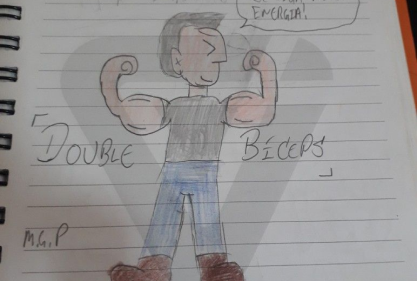 ENERGIA!
「DOUBLE BÍCEPS」
M.G.P